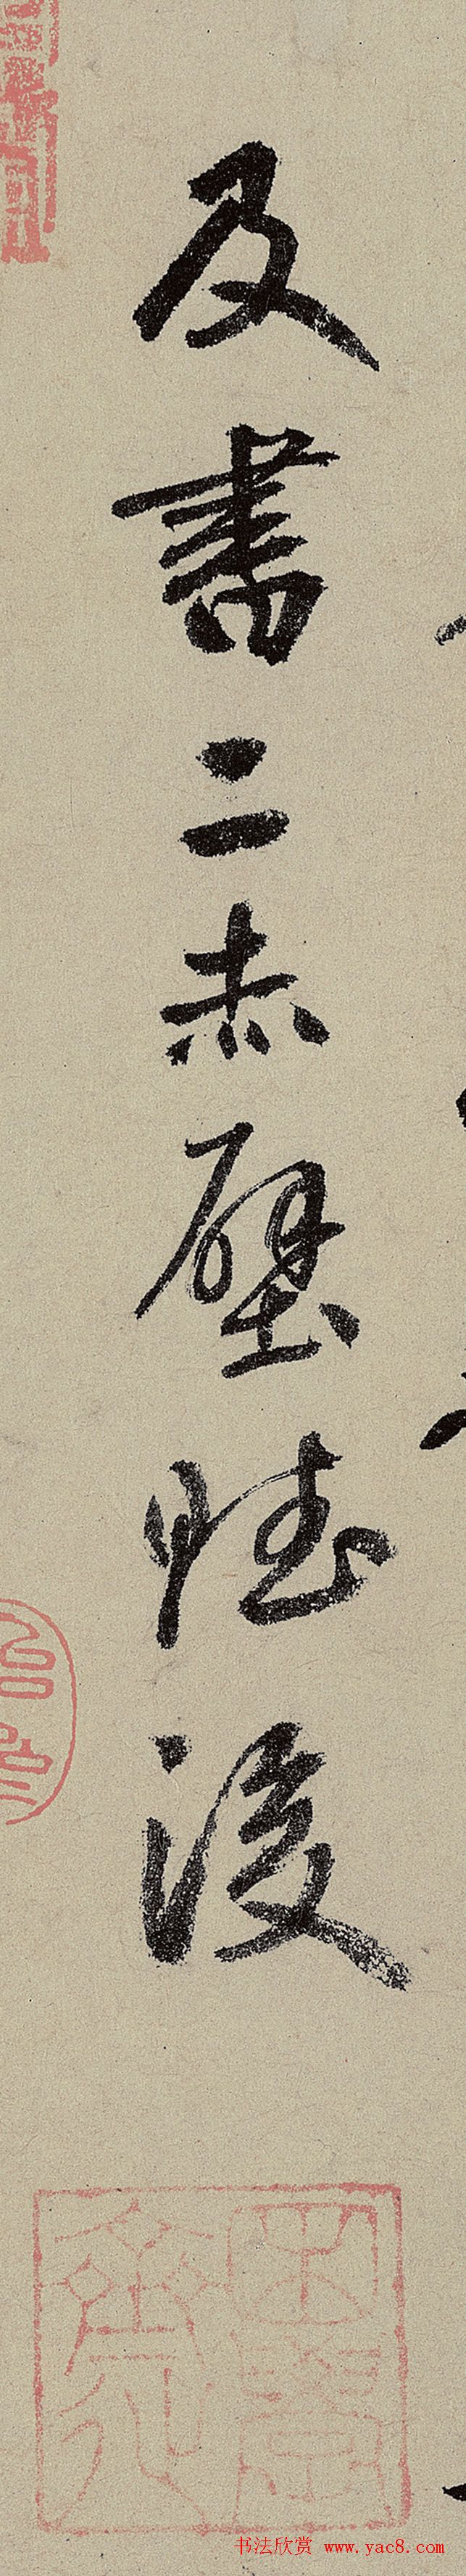 及書二赤壁賦後
书法欣赏 www.yac8.com